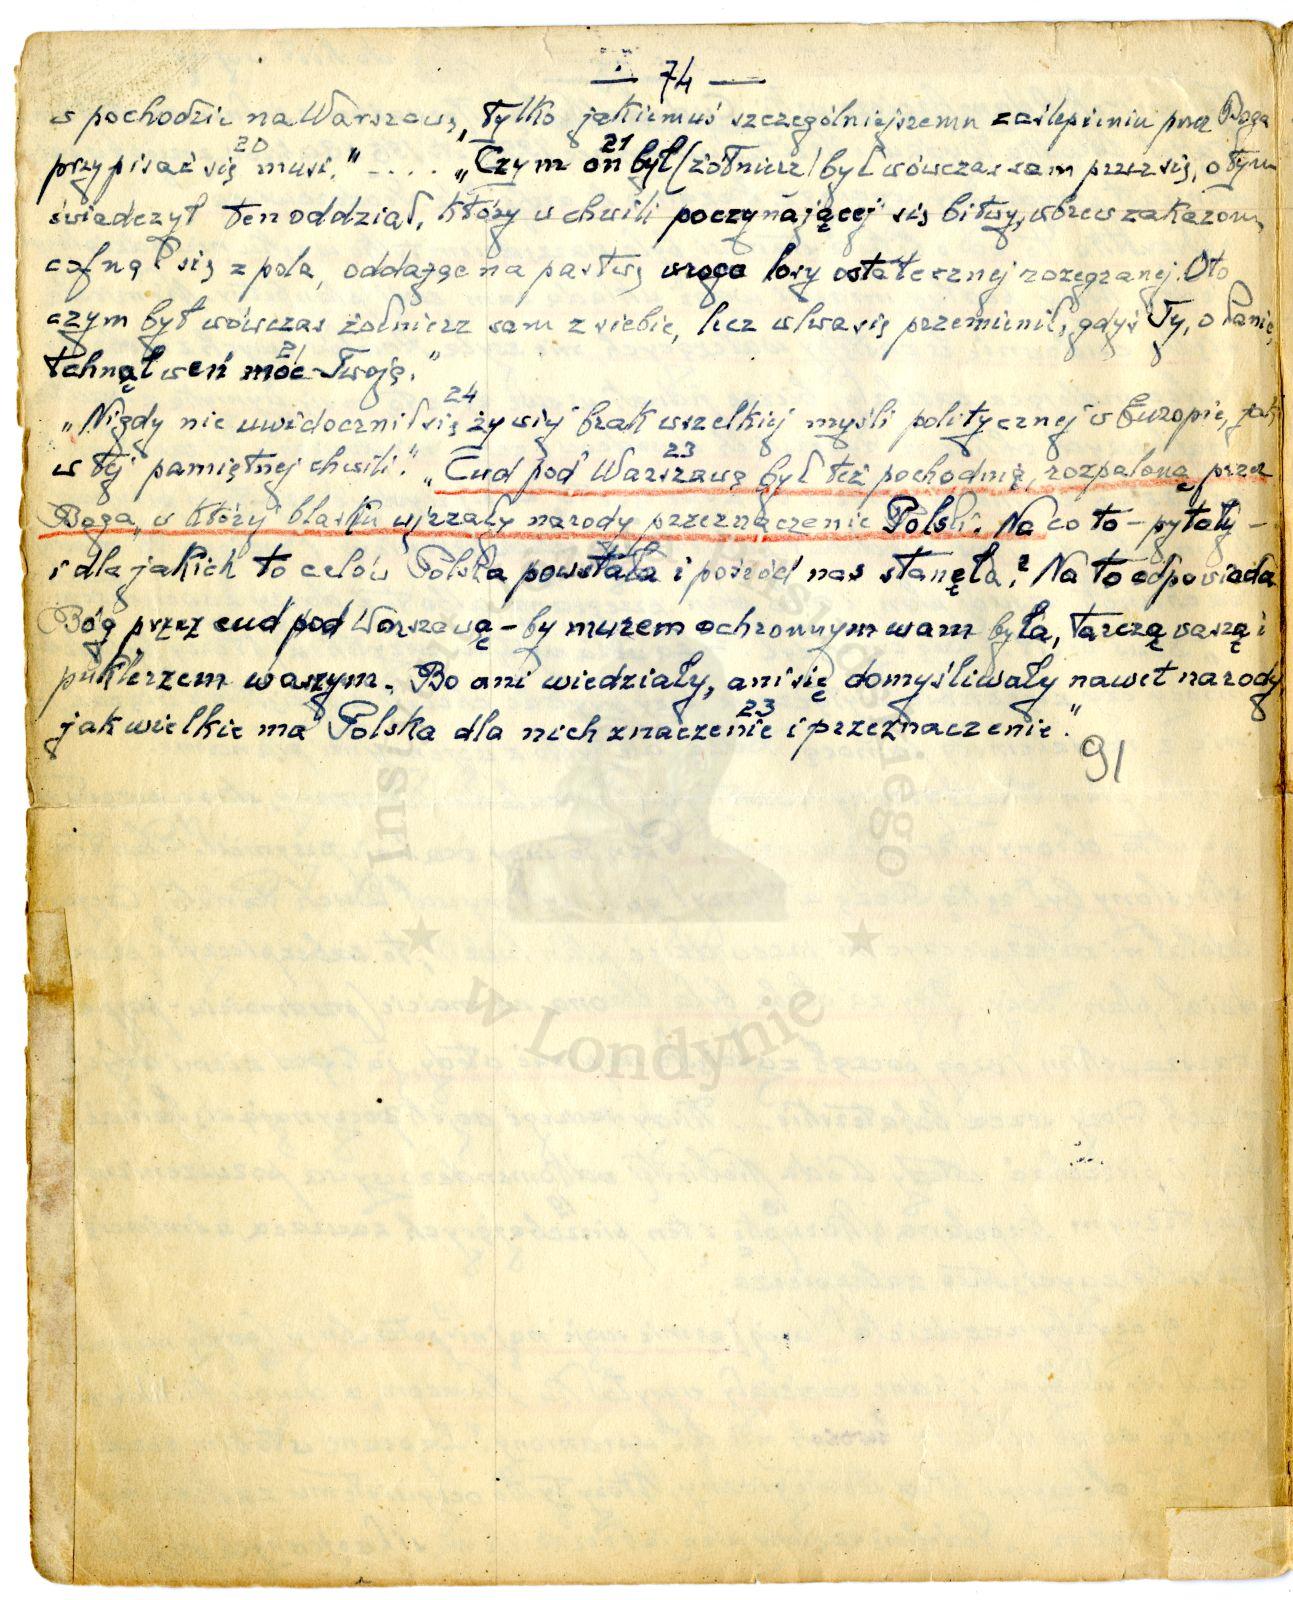 — 74 —
w pochodzie na Warszawę, tylko jakiemuś szczególniejszemu zaślepieniu przez Boga
przypisać się musi."²⁰ - .... „Czym on²¹ był (żółnierz) był wówczas sam przez się, o tym
świadczył ten oddział, który w chwili poczynającej się bitwy, wbrew zakazom,
cofnął się z pola, oddając na pastwę wroga losy ostatecznej rozegranej. Oto
czym był wówczas żołnierz sam z siebie, lecz w lwa się przemienił, gdyś Ty, o Panie,
tchnął weń moc²¹ Twoją."
„Nigdy nie uwidocznił się²⁴ żywiej brak wszelkiej myśli politycznej w Europie, jak
w tej pamiętnej chwili." „Cud pod Warszawą²³ był też pochodnią, rozpaloną przez
Boga, w której blasku ujrzały narody przeznaczenie Polski. Na co to - pytały -
i dla jakich to celów Polska powstała i pośród nas stanęła? Na to odpowiada
Bóg przez cud pod Warszawą - by murem ochronnym wam była, tarczą waszą i
puklerzem waszym. Bo ani wiedziały, ani się domyśliwały nawet narody,
jak wielkie ma Polska dla nich znaczenie²³ i przeznaczenie."
91
w Londynie